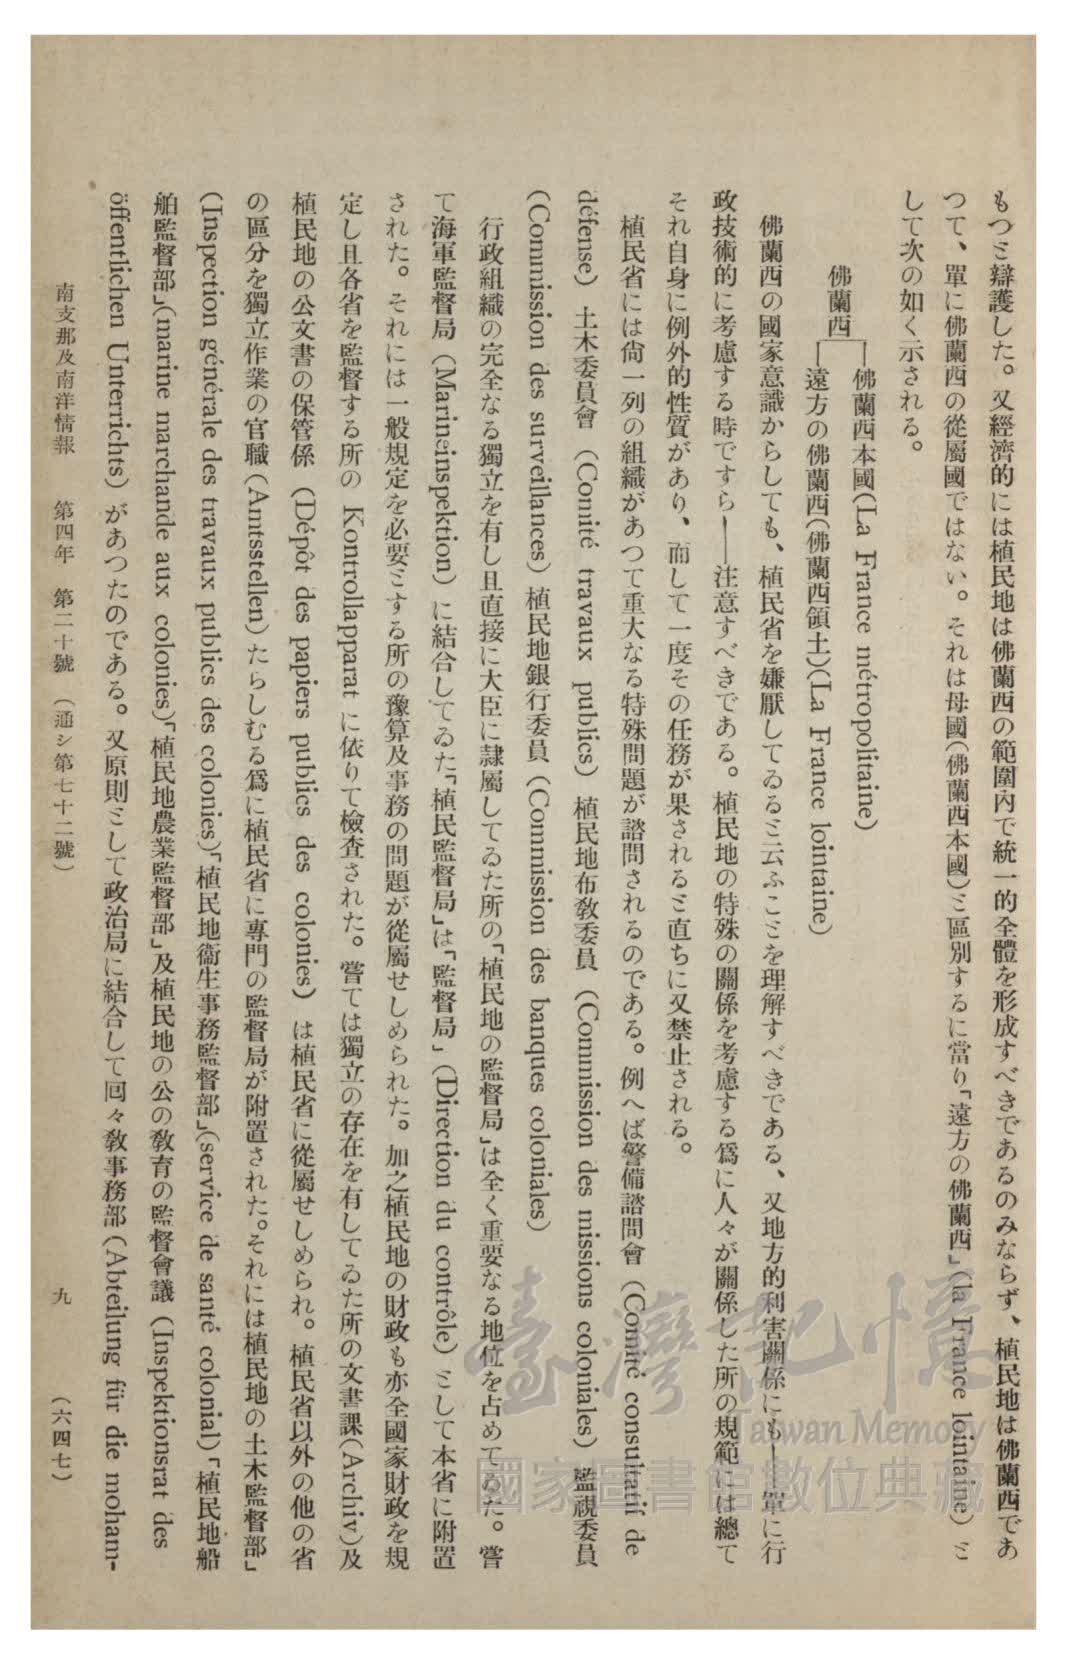 もつミ辯護した。又經濟的には植民地は佛蘭西の範圍內で統一的全體を形成すべきであるのみならず、植民地は佛蘭西であ
つて、單に佛蘭西の從屬國ではない。それは母國(佛蘭西本國)ミ區別するに當り「遠方の佛蘭西」(la France lointaine)ミ
して次の如く示される。
佛蘭西
佛蘭西本國(La France métropolitaine)
遠方の佛蘭西(佛蘭西領土)(La France lointaine)
佛蘭西の國家意識からしても、植民省を嫌厭してゐるミ云ふこミを理解すべきである、又地方的利害關係にも—單に行
政技術的に考慮する時ですら——注意すべきである。植民地の特殊の關係を考慮する爲に人々が關係した所の規範には總て
それ自身に例外的性質があり、而して一度その任務が果されるミ直ちに又禁止される。
植民省には尙一列の組織があつて重大なる特殊問題が諮問されるのである。例へば警備諮問會 (Comité consultatif de
défense) 土木委員會 (Comité travaux publics) 植民地布敎委員 (Commission des missions coloniales) 監視委員
(Commission des surveillances) 植民地銀行委員 (Commission des banques coloniales)
行政組織の完全なる獨立を有し且直接に大臣に隷屬してゐた所の「植民地の監督局」は全く重要なる地位を占めてゐた。嘗
て海軍監督局 (Marineinspektion) に結合してゐた「植民監督局」は「監督局」(Direction du contrôle) ミして本省に附置
された。それには一般規定を必要ミする所の豫算及事務の問題が從屬せしめられた。加之植民地の財政も亦全國家財政を規
定し且各省を監督する所の Kontrollapparat に依りて檢査された。嘗ては獨立の存在を有してゐた所の文書課(Archiv)及
植民地の公文書の保管係 (Dépôt des papiers publics des colonies) は植民省に從屬せしめられ。植民省以外の他の省
の區分を獨立作業の官職(Amtsstellen)たらしむる爲に植民省に專門の監督局が附置された。それには植民地の土木監督部」
(Inspection générale des travaux publics des colonies)「植民地衞生事務監督部」(service de santé colonial)「植民地船
舶監督部」(marine marchande aux colonies)「植民地農業監督部」及植民地の公の敎育の監督會議 (Inspektionsrat des
öffentlichen Unterrichts) があつたのである。又原則ミして政治局に結合して回々敎事務部(Abteilung für die moham-
南支那及南洋情報 第四年 第二十號 (通シ第七十二號) 九 (六四七)
臺灣記憶
Taiwan Memory
國家圖書館數位典藏